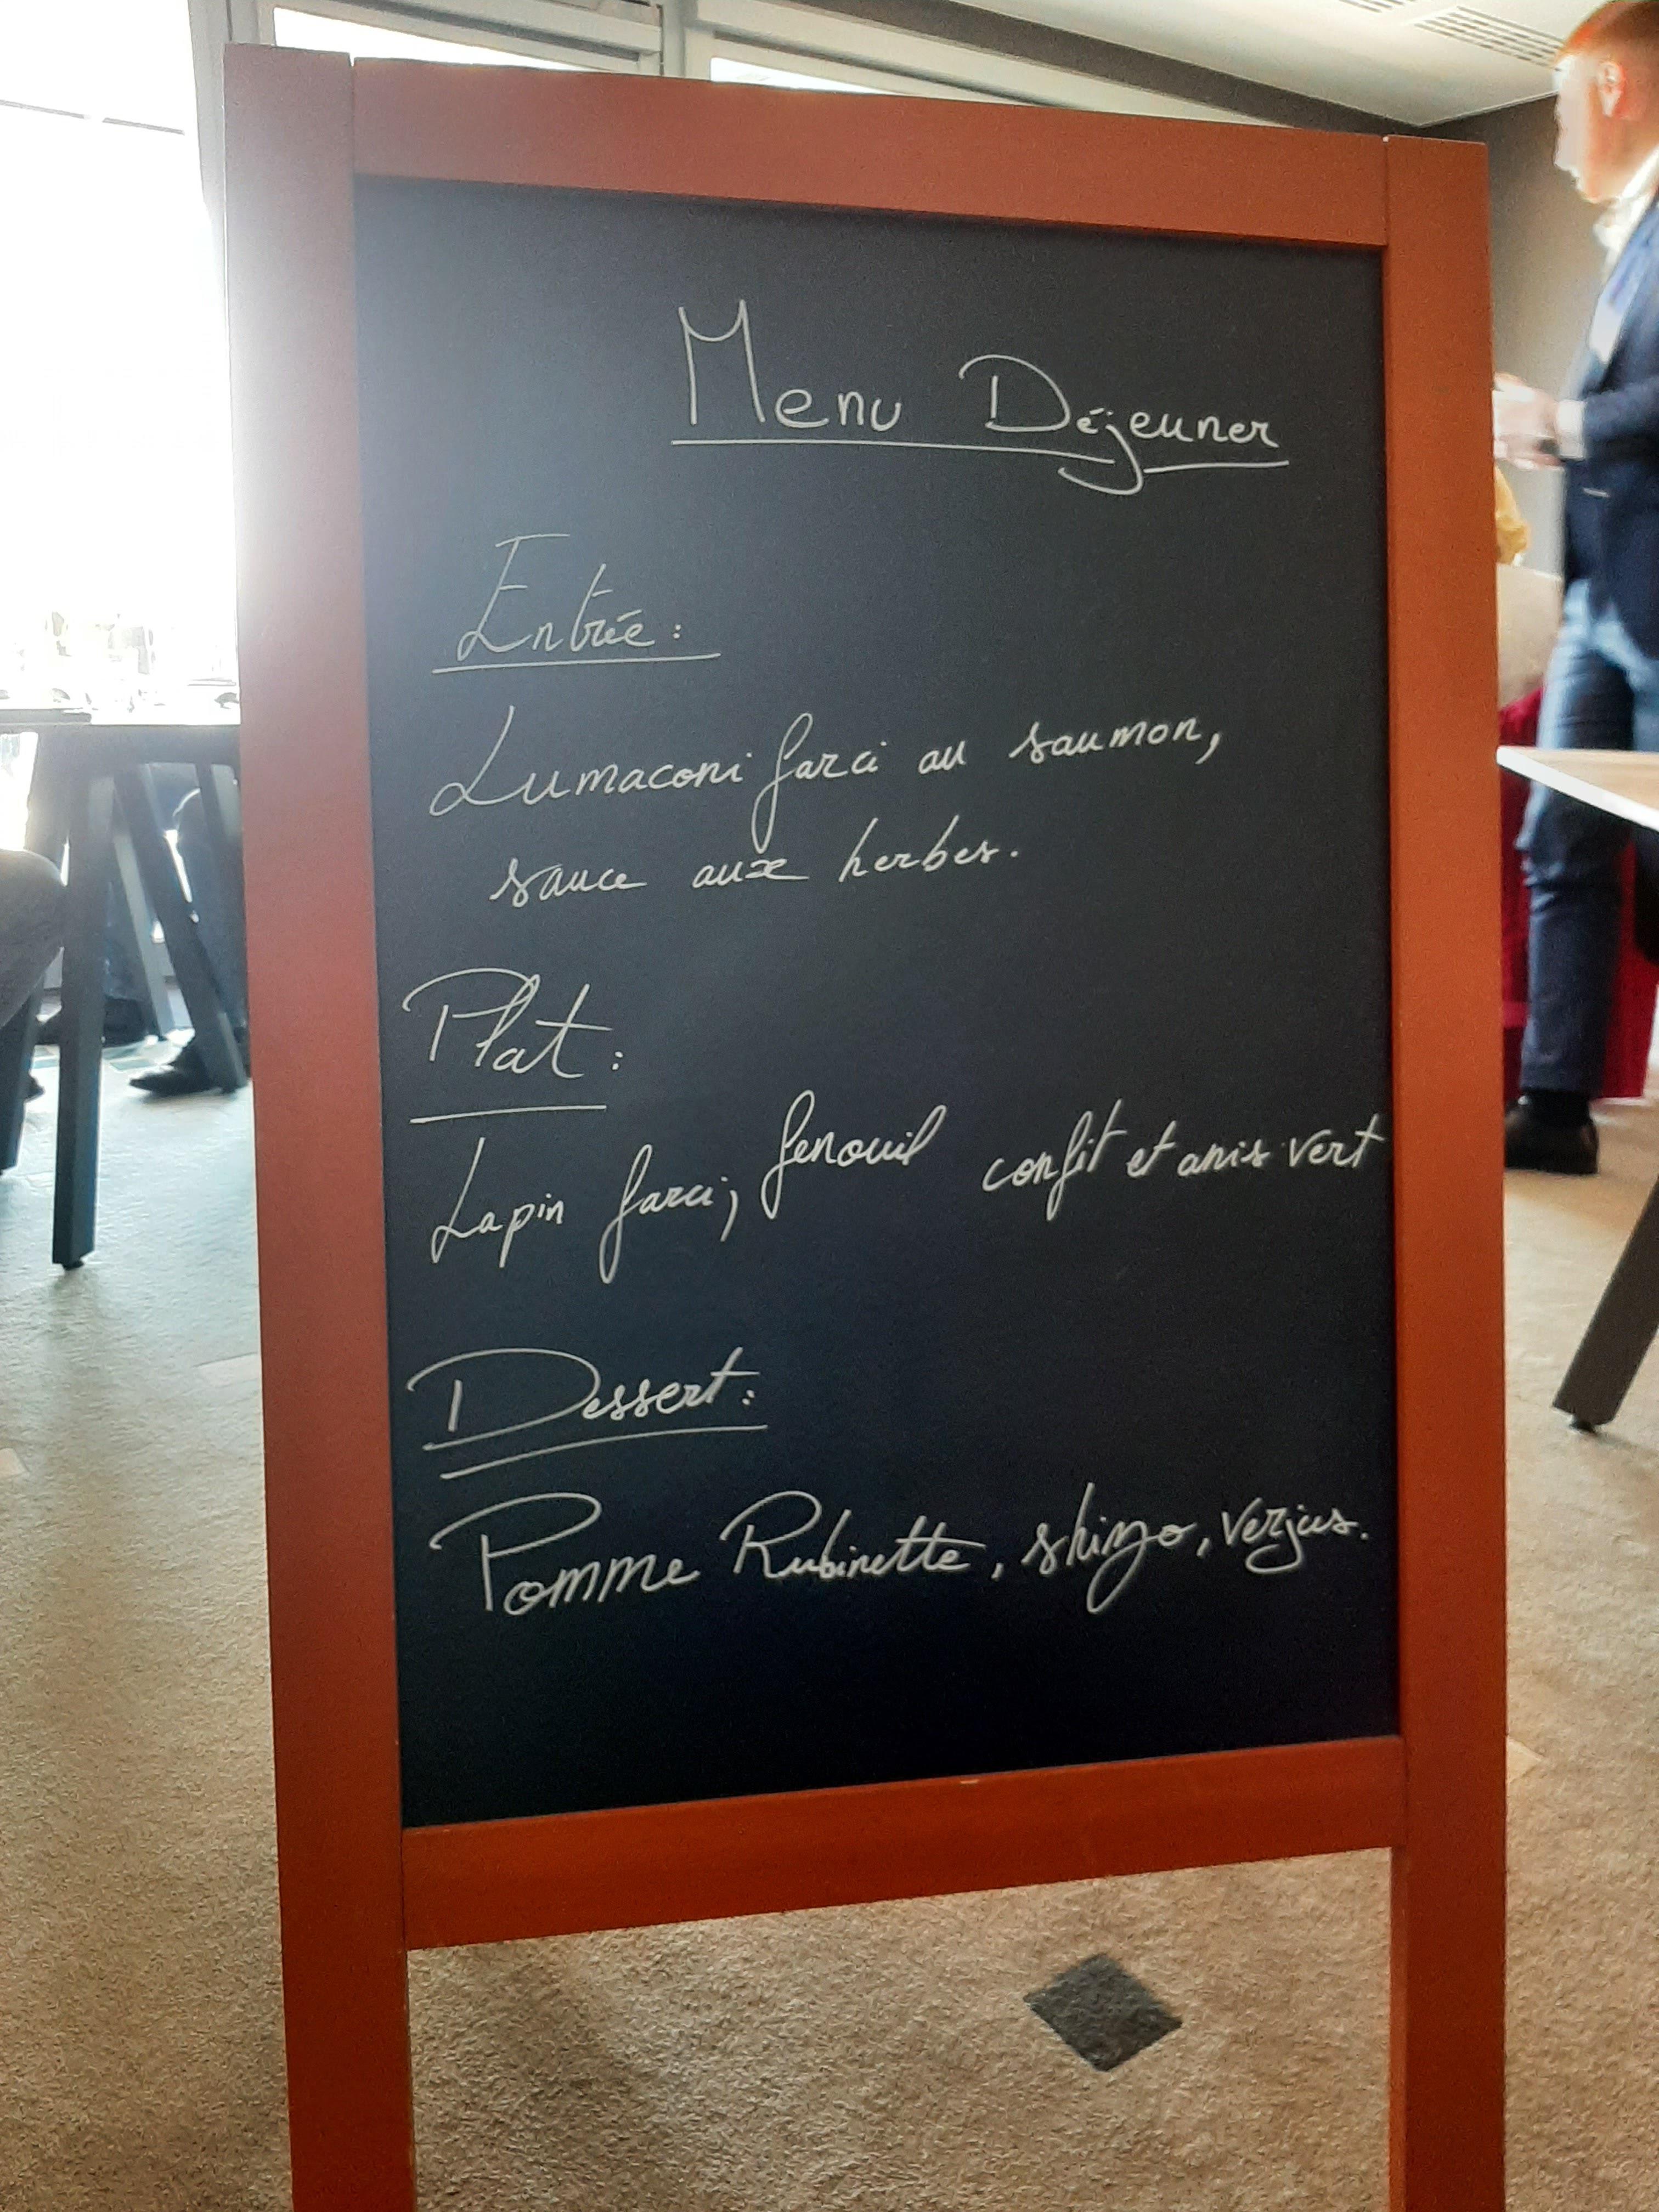 Menu Déjeuner
Entrée :
Lumaconi farci au saumon,
sauce aux herbes.
Plat :
Lapin farci, fenouil confit et anis vert
Dessert :
Pomme Rubinette, shizo, verjus.